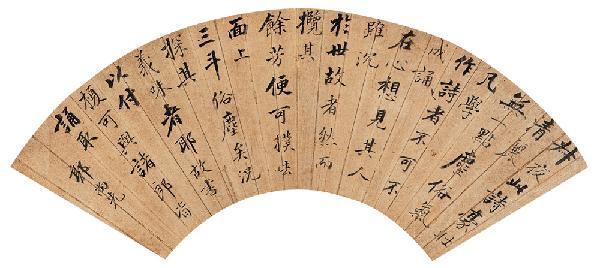 叔夜此詩豪壯
清麗
無一點塵俗氣
凡學
作詩者不可不
成誦
在心想見其人
雖沉
於世故者然而
攬其
餘芳便可撲去
面上
三斗俗塵矣況
探其
義味者耶故書
以付
榎可與諸郎皆
誦取 郭尚先